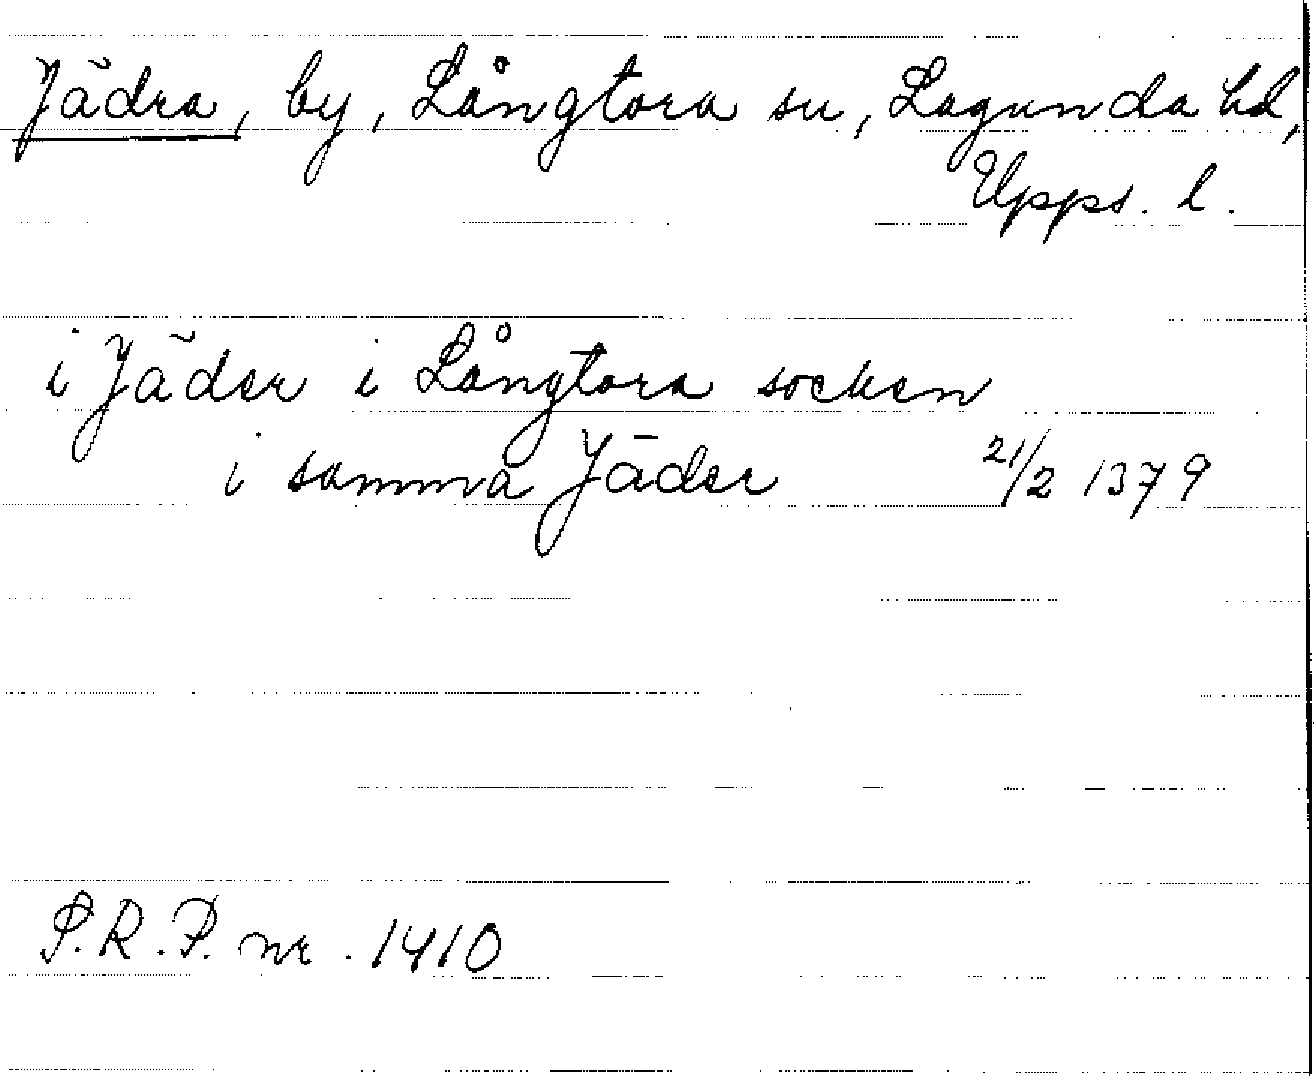 Jädra, by, Långtora sn, Lagunda hd,
Upps. l.
i Jäder i Långtora socken
i samma Jäder 21/2 1379
S.R.P. nr. 1410